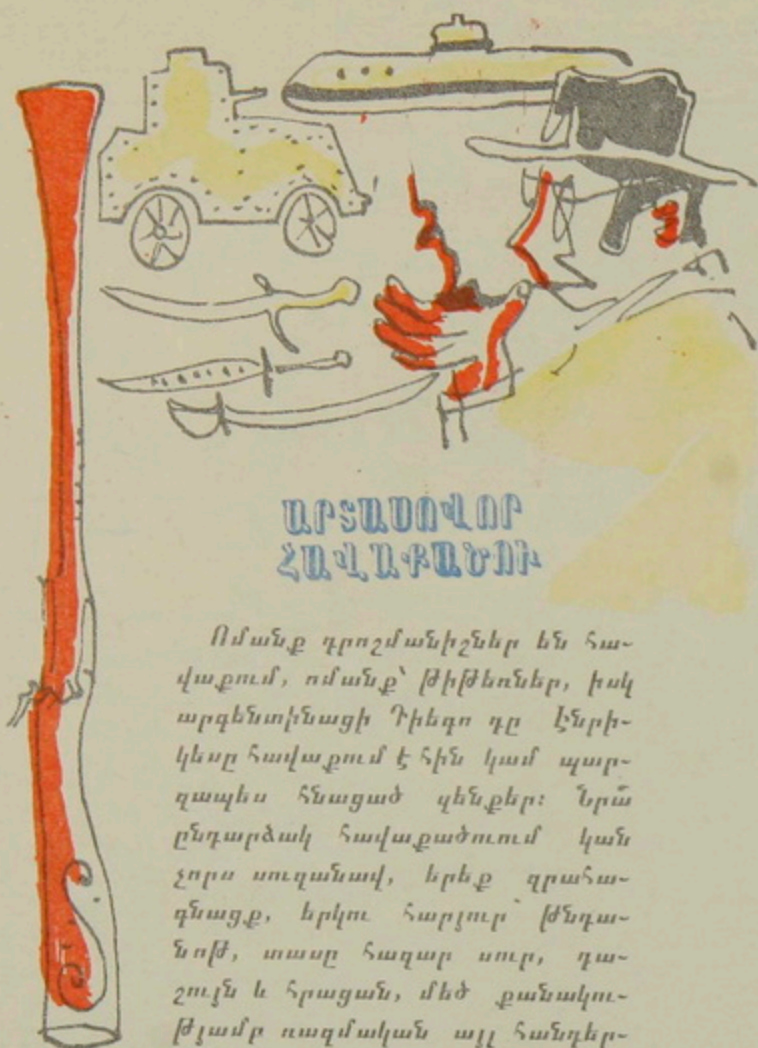 ԱՐՏԱՍՈՎՈՐ
ՀԱՎԱՔԱԾՈՒ
Ոմանք դրոշմանիշներ են հա-
վաքում, ոմանք՝ թիթեռներ, իսկ
արգենտինացի Դիեգո դը Էնրի-
կեսը հավաքում է հին կամ պար-
զապես հնացած զենքեր։ Նրա
ընդարձակ հավաքածուում կան
չորս սուզանավ, երեք զրահա-
գնացք, երկու հարյուր թնդա-
նոթ, տասը հազար սուր, դա-
շույն և հրացան, մեծ քանակու-
թյամբ ռազմական այլ հանդեր-